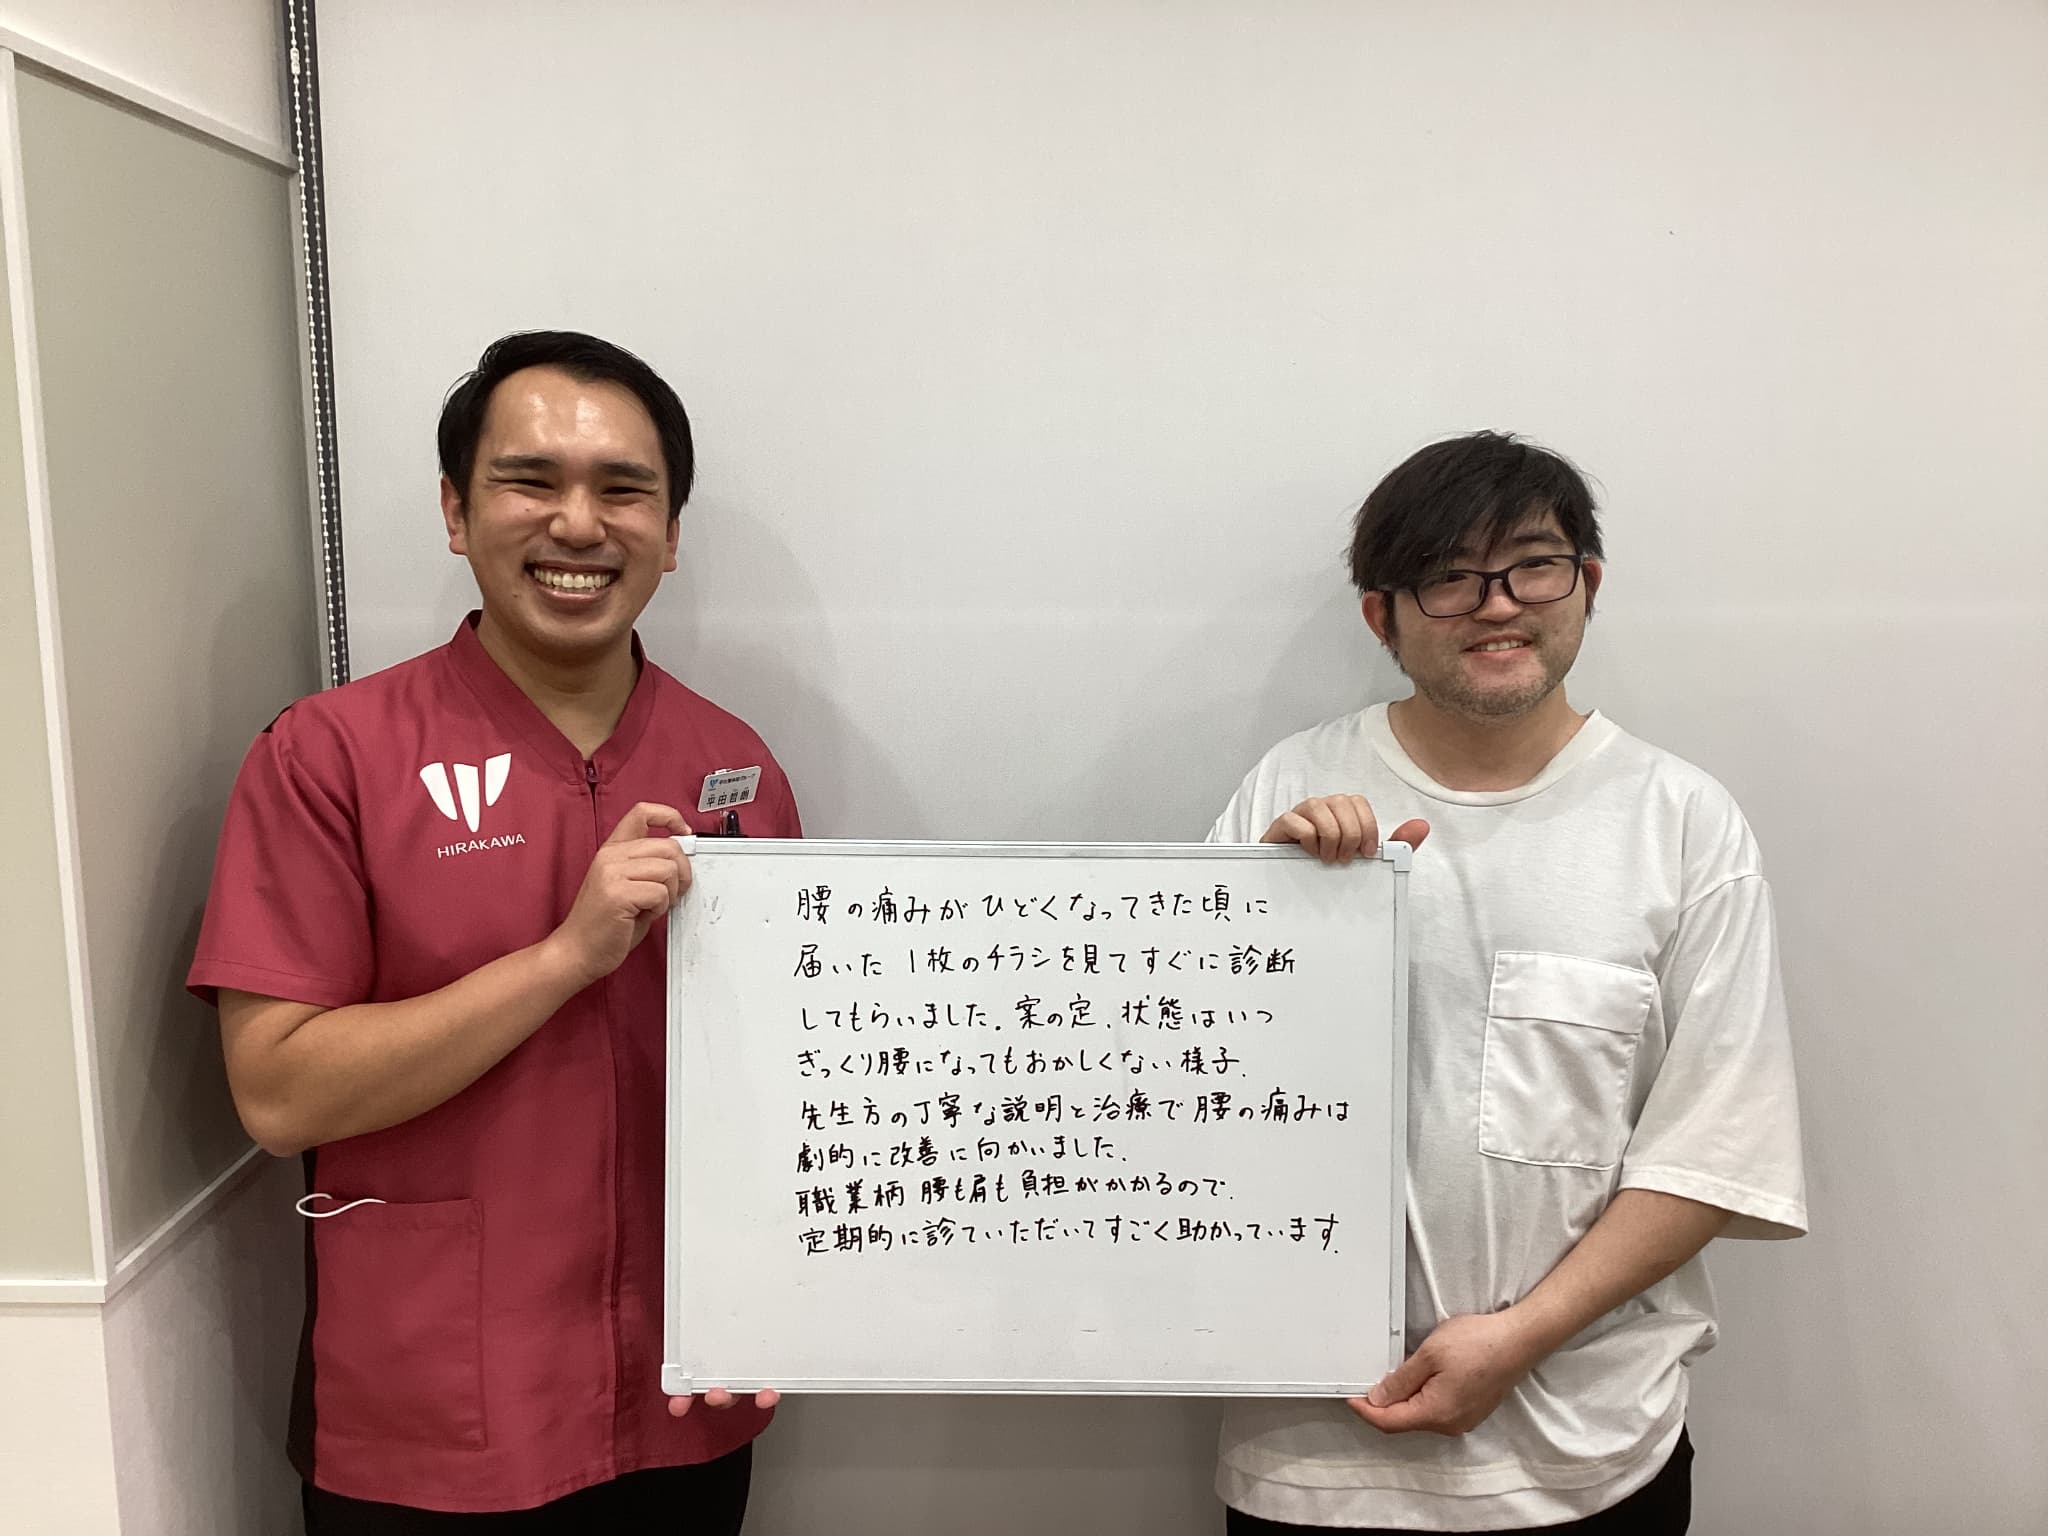 HIRAKAWA
平田 哲朗
腰の痛みがひどくなってきた頃に
届いた1枚のチラシを見てすぐに診断
してもらいました。案の定、状態はいつ
ぎっくり腰になってもおかしくない様子、
先生方の丁寧な説明と治療で腰の痛みは
劇的に改善に向かいました、
職業柄 腰も肩も負担がかかるので、
定期的に診ていただいてすごく助かっています、